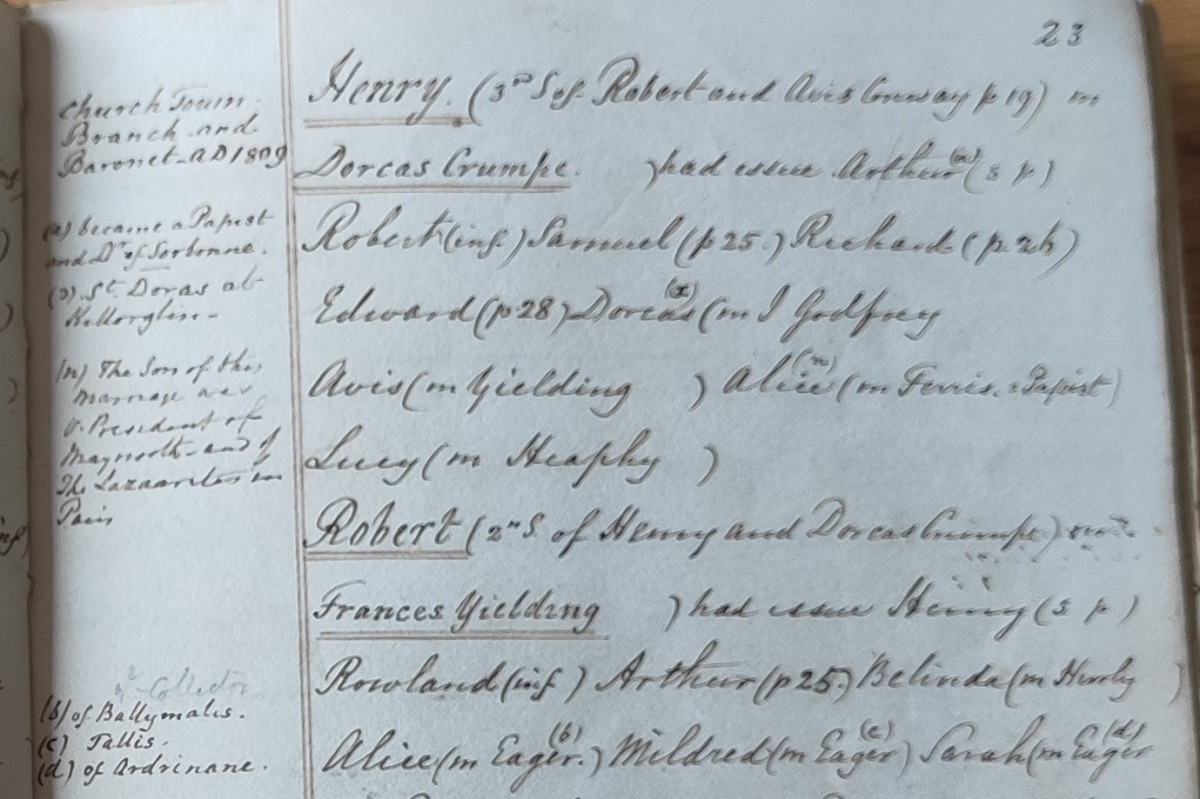 23
Church Town
Branch and
Baronet - AD 1809
Henry. (3rd S of Robert and Avis Conway p 19) m
Dorcas Crumpe. ) had issue Arthur (a) (s p)
(a) became a Papist
and Dr of Sorbonne.
Robert (inf) Samuel (p 25.) Richard (p 26)
St. Doras at
Killorglin -
Edward (p 28) Dorcas (x) (m J Godfrey
(n) The Son of this
Marriage was
V. President of
Maynooth - and of
The Lazaarites in
Paris
Avis (m Yielding ) Alice (n) (m Ferris. a Papist)
Lucy (m Heaphy )
Robert (2nd S. of Henry and Dorcas Crumpe)
Frances Yielding ) had issue Henry (s p)
Rowland (inf) Arthur (p 25) Belinda (m
Collector
(b) of Ballymalis.
(c) Tallis.
(d) of Ardrinane.
Alice (m Eager. (b)) Mildred (m Eager (c)) Sarah (m Eager (d)